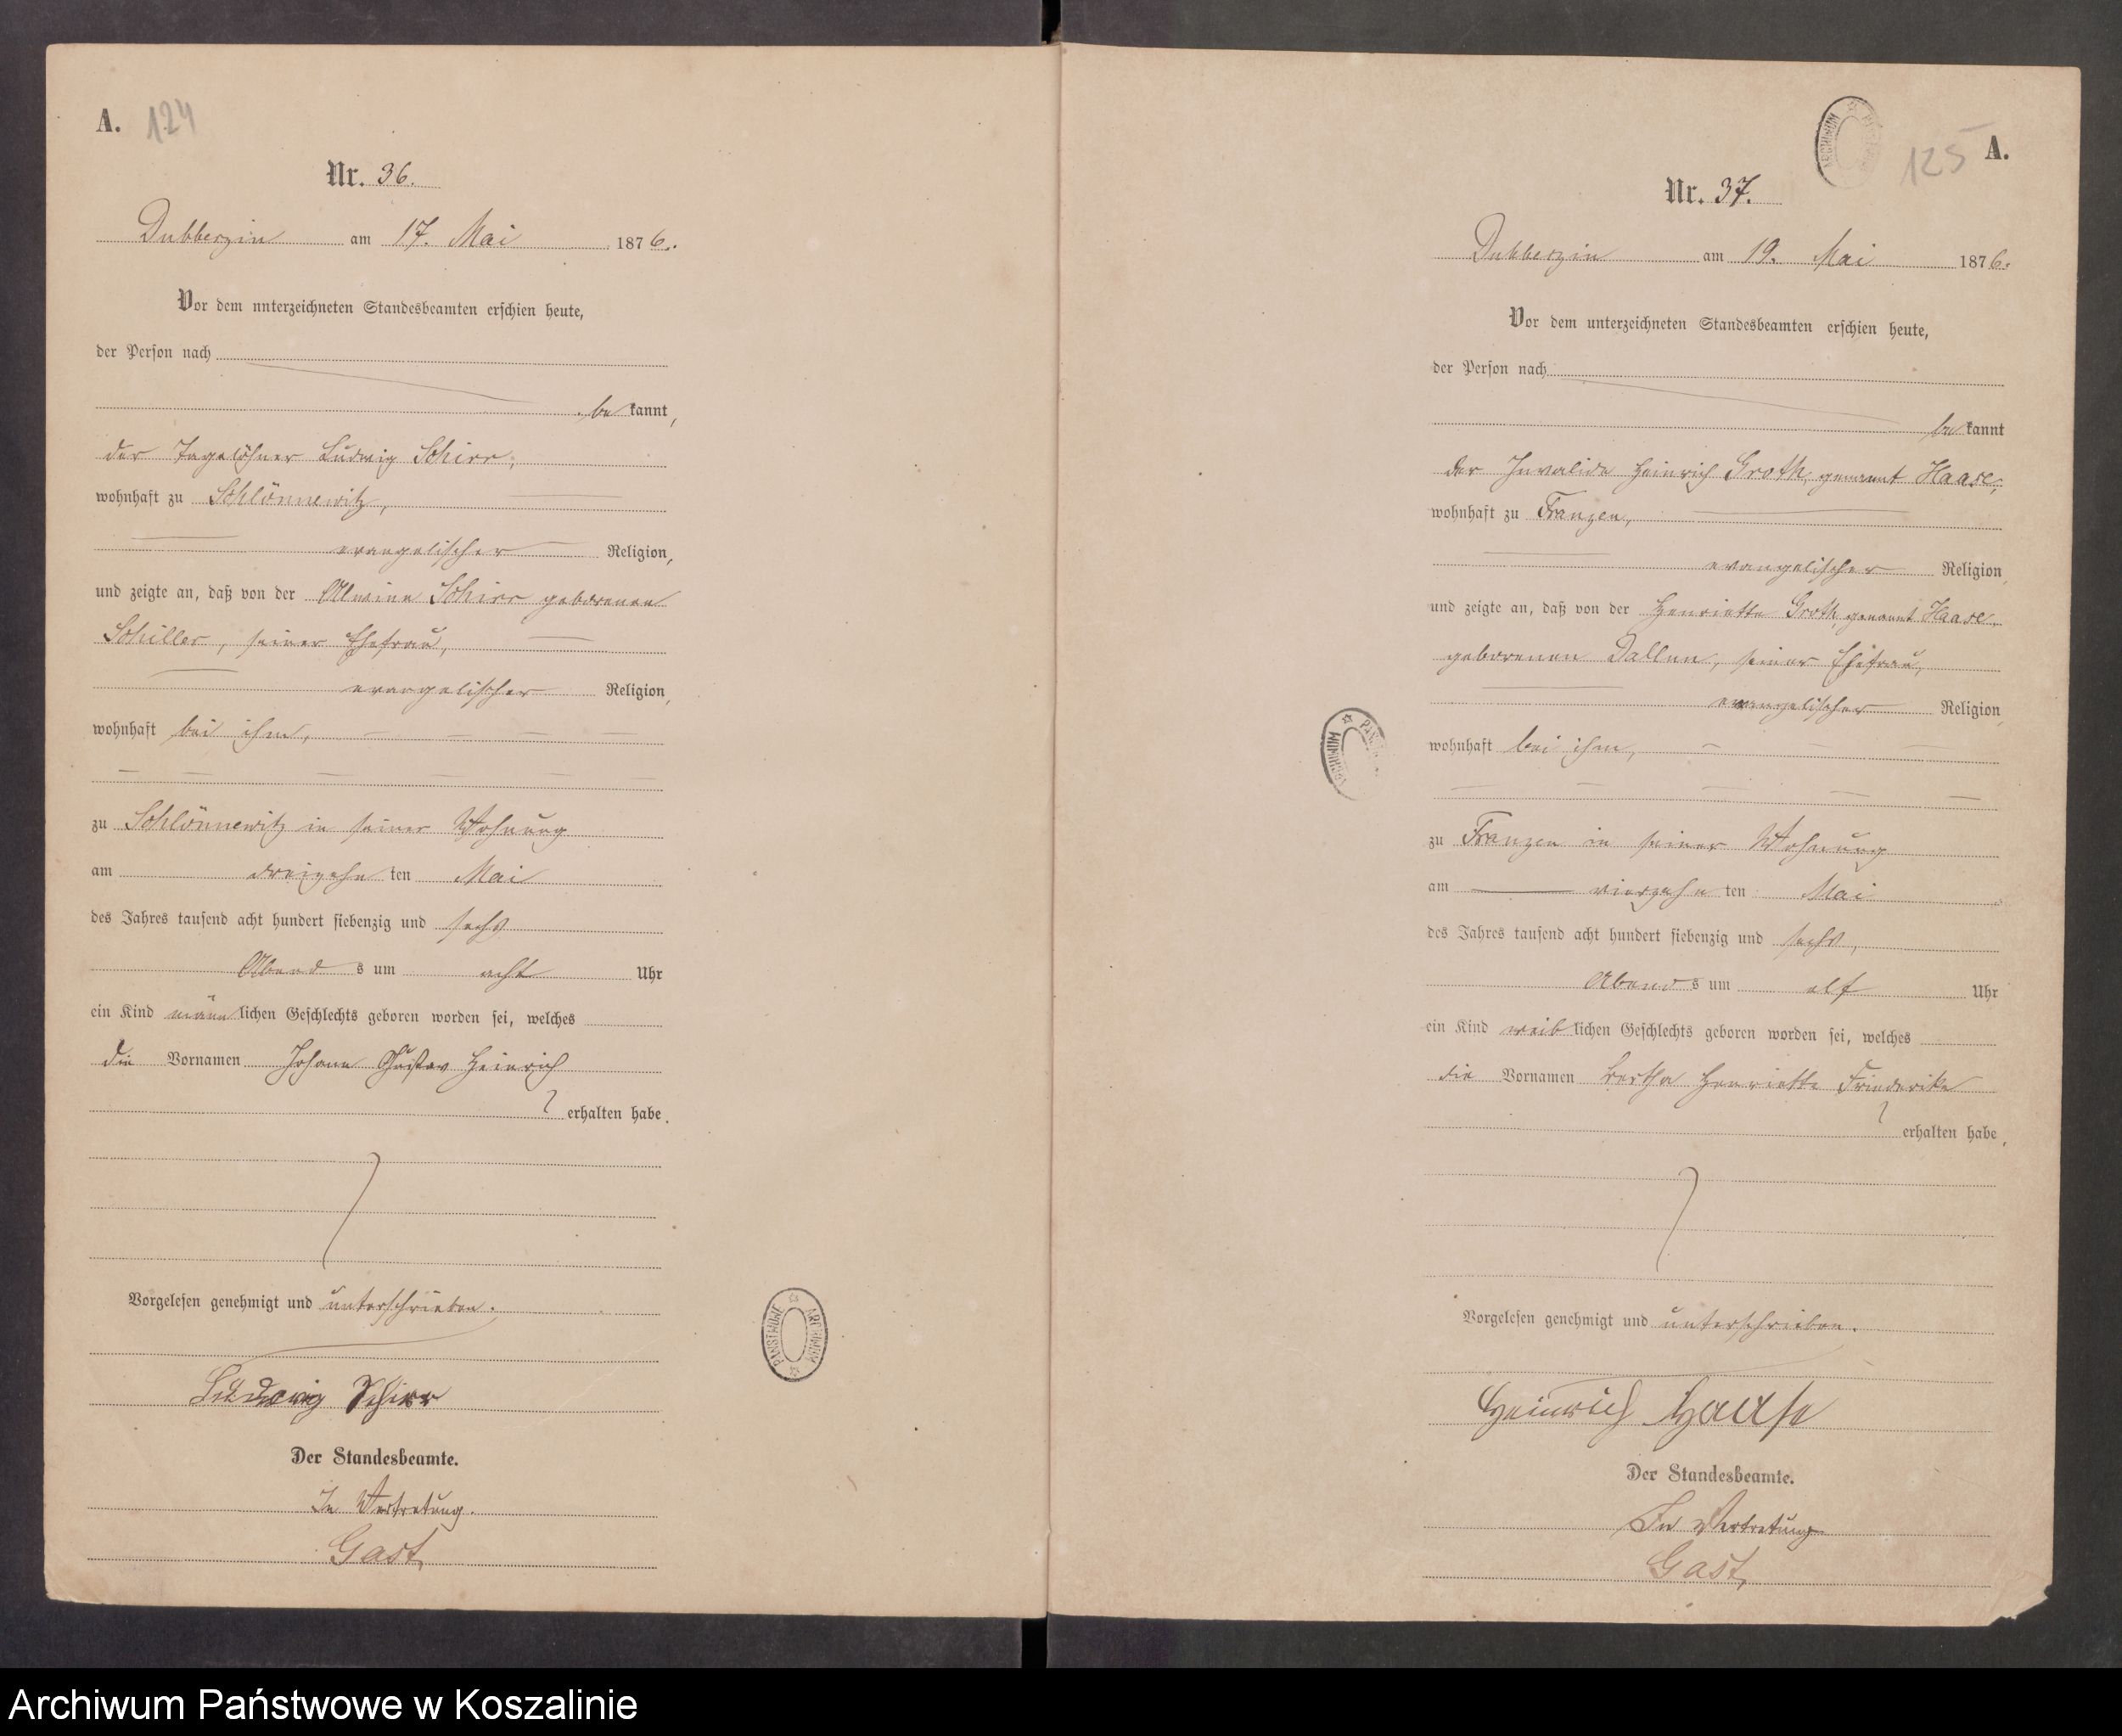 A. 124
Nr. 36.
Dubberzin am 17. Mai 1876.
Vor dem unterzeichneten Standesbeamten erschien heute,
der Person nach
bekannt,
der Tagelöhner Ludwig Schirr,
wohnhaft zu Schlönnewitz,
evangelischer Religion,
und zeigte an, daß von der Alwine Schirr geborenen
Schiller, seiner Ehefrau,
evangelischer Religion,
wohnhaft bei ihm,
zu Schlönnewitz in seiner Wohnung
am dreizehnten Mai
des Jahres tausend acht hundert siebenzig und sechs
Abends um acht Uhr
ein Kind männlichen Geschlechts geboren worden sei, welches
die Vornamen Johann Gustav Heinrich
erhalten habe.
Vorgelesen genehmigt und unterschrieben.
Ludwig Schirr
Der Standesbeamte.
In Vertretung.
Gast
PAŃSTWOWE ARCHIWUM
ARCHIWUM
125 A.
Nr. 37.
Dubberzin am 19. Mai 1876.
Vor dem unterzeichneten Standesbeamten erschien heute,
der Person nach
bekannt
der Invalide Heinrich Groth, genannt Haase,
wohnhaft zu Franzen,
evangelischer Religion,
und zeigte an, daß von der Henriette Groth, genannt Haase
geborenen Dallun, seiner Ehefrau,
evangelischer Religion,
wohnhaft bei ihm,
zu Franzen in seiner Wohnung
am vierzehnten Mai
des Jahres tausend acht hundert siebenzig und sechs,
Abends um elf Uhr
ein Kind weiblichen Geschlechts geboren worden sei, welches
die Vornamen Bertha Henriette Friederike
erhalten habe.
Vorgelesen genehmigt und unterschrieben.
Heinrich Haase
Der Standesbeamte.
In Vertretung
Gast
ARCHIWUM
Archiwum Państwowe w Koszalinie